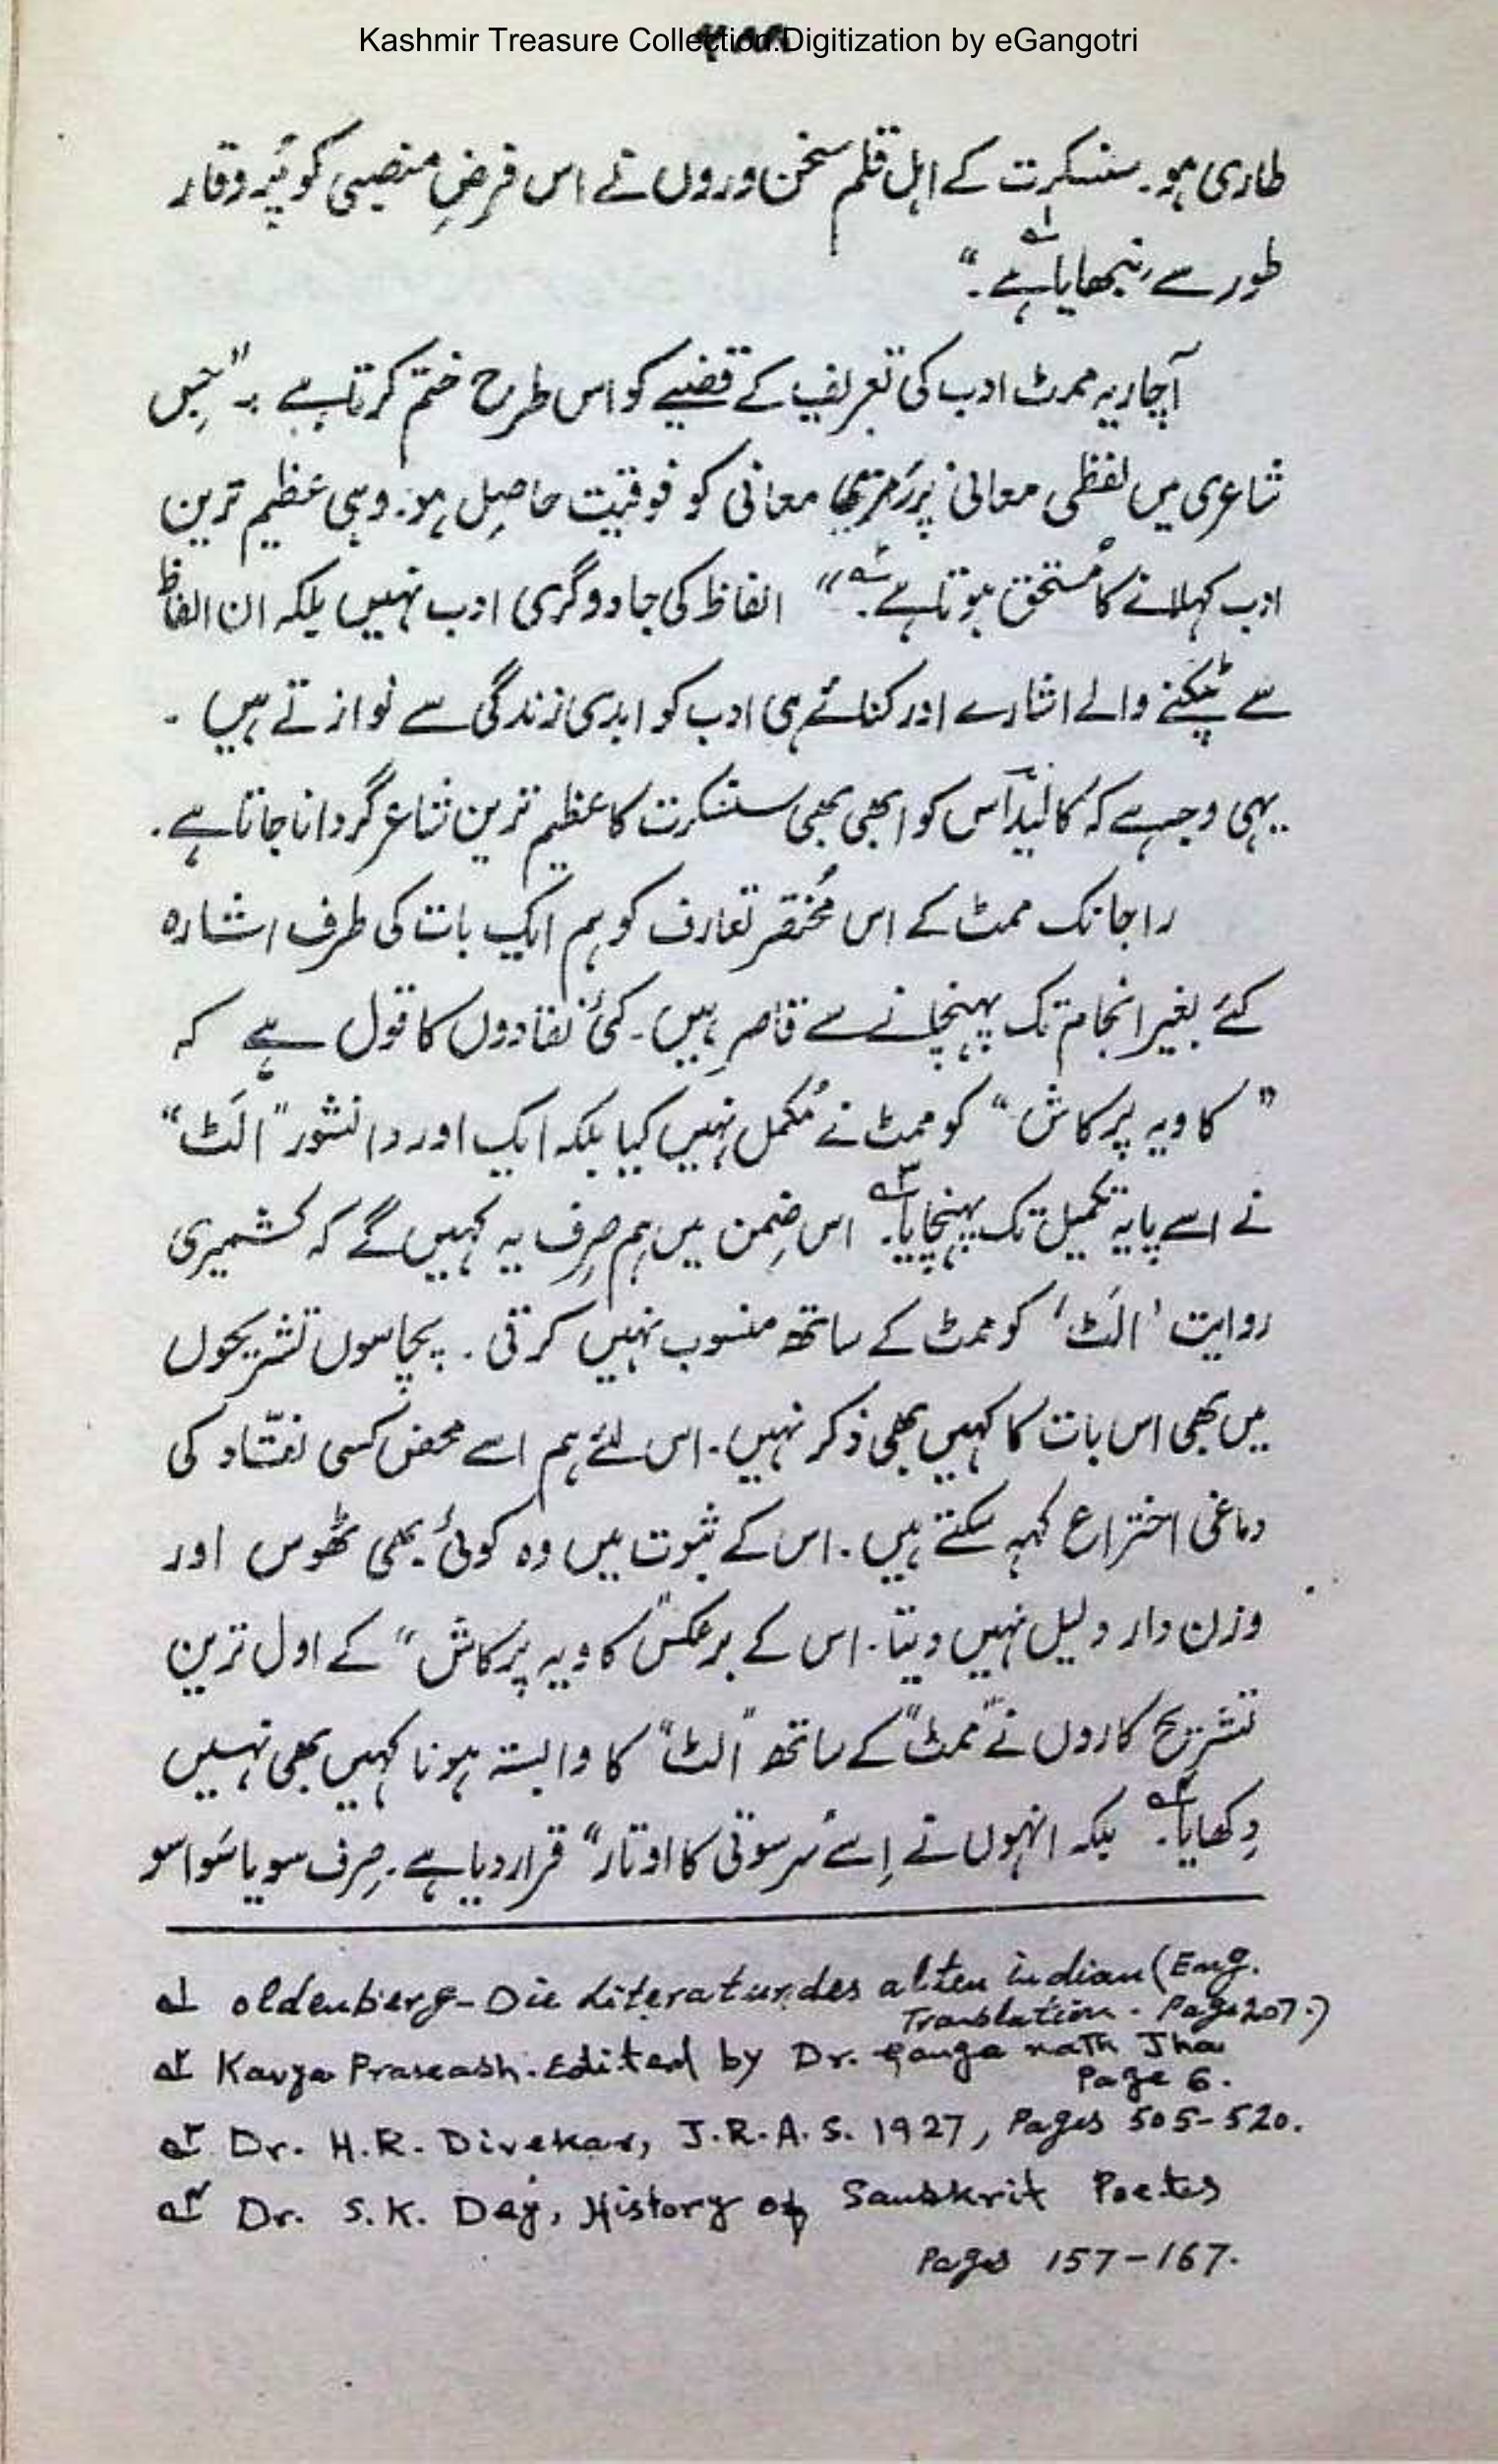 Kashmir Treasure Collection. Digitization by eGangotri
طاری ہو۔ سنسکرت کے اہل قلم سخن وروں نے اس فرضِ منصبی کو پُر وقار
طور سے نبھایا ہے۱؎۔“
آچاریہ ممٹ ادب کی تعریف کے قضیے کو اس طرح ختم کرتا ہے :۔ ”جِس
شاعری میں لفظی معانی پر رمزی معانی کو فوقیت حاصِل ہو۔ وہی عظیم ترین
ادب کہلانے کا مُستحق ہوتا ہے۲؎۔“ الفاظ کی جادوگری ادب نہیں بلکہ ان الفاظ
سے ٹپکنے والے اشارے اور کنائے ہی ادب کو ابدی زندگی سے نوازتے ہیں ۔
یہی وجہ ہے کہ کالیداس کو ابھی بھی سنسکرت کا عظیم ترین شاعر گردانا جاتا ہے۔
راجانک ممٹ کے اس مُختصر تعارف کو ہم ایک بات کی طرف اشارہ
کئے بغیر انجام تک پہنچانے سے قاصر ہیں۔ کئی نقادوں کا قول ہے کہ
”کاویہ پرکاش“ کو ممٹ نے مُکمل نہیں کیا بلکہ ایک اور دانشور ”الَٹ“
نے اسے پایہ تکمیل تک پہنچایا۳؎۔ اس ضِمن میں ہم صِرف یہ کہیں گے کہ کشمیری
روایت ’الَٹ‘ کو ممٹ کے ساتھ منسوب نہیں کرتی ۔ پچاسوں تشریحوں
میں بھی اس بات کا کہیں بھی ذکر نہیں۔ اس لئے ہم اسے محض کسی نقّاد کی
دماغی اختراع کہہ سکتے ہیں ۔ اس کے ثبوت میں وہ کوئی بھی ٹھوس اور
وزن دار دلیل نہیں دیتا۔ اس کے برعکس ”کاویہ پرکاش“ کے اول ترین
تشریح کاروں نے ”ممٹ“ کے ساتھ ”الٹ“ کا وابستہ ہونا کہیں بھی نہیں
دِکھایا۴؎۔ بلکہ انہوں نے اِسے ”سرسوتی کا اوتار“ قرار دیا ہے۔ صِرف سو یا سَوا سو
۱؎ oldenberg - Die Literatur des alten indian (Eng.
Translation. Page 207.)
۲؎ Kavya Prakash. Edited by Dr. Ganga nath Jha
Page 6.
۳؎ Dr. H.R. Divekar, J.R.A.S. 1927, Pages 505-520.
۴؎ Dr. S.K. Dey, History of Sanskrit Poetes
Pages 157-167.